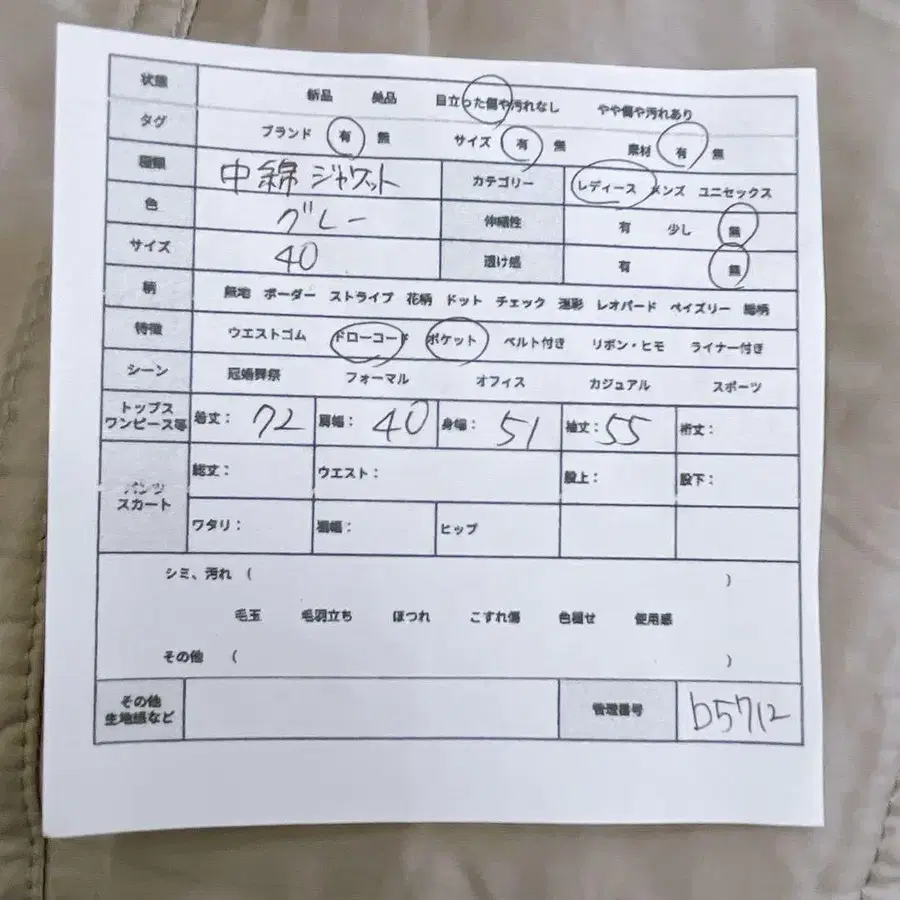 状態 新品 美品 目立った傷や汚れなし やや傷や汚れあり
タグ ブランド 有 無 サイズ 有 無 素材 有 無
種類 中綿ジャケット カテゴリー レディース メンズ ユニセックス
色 グレー 伸縮性 有 少し 無
サイズ 40 透け感 有 無
柄 無地 ボーダー ストライプ 花柄 ドット チェック 迷彩 レオパード ペイズリー 総柄
特徴 ウエストゴム ドローコード ポケット ベルト付き リボン・ヒモ ライナー付き
シーン 冠婚葬祭 フォーマル オフィス カジュアル スポーツ
トップス
ワンピース等 着丈: 72 肩幅: 40 身幅: 51 袖丈: 55 裄丈:
パンツ
スカート 総丈: ウエスト: 股上: 股下:
ワタリ: 裾幅: ヒップ
シミ、汚れ ( )
毛玉 毛羽立ち ほつれ こすれ傷 色褪せ 使用感
その他 ( )
その他
生地感など 管理番号 b5712